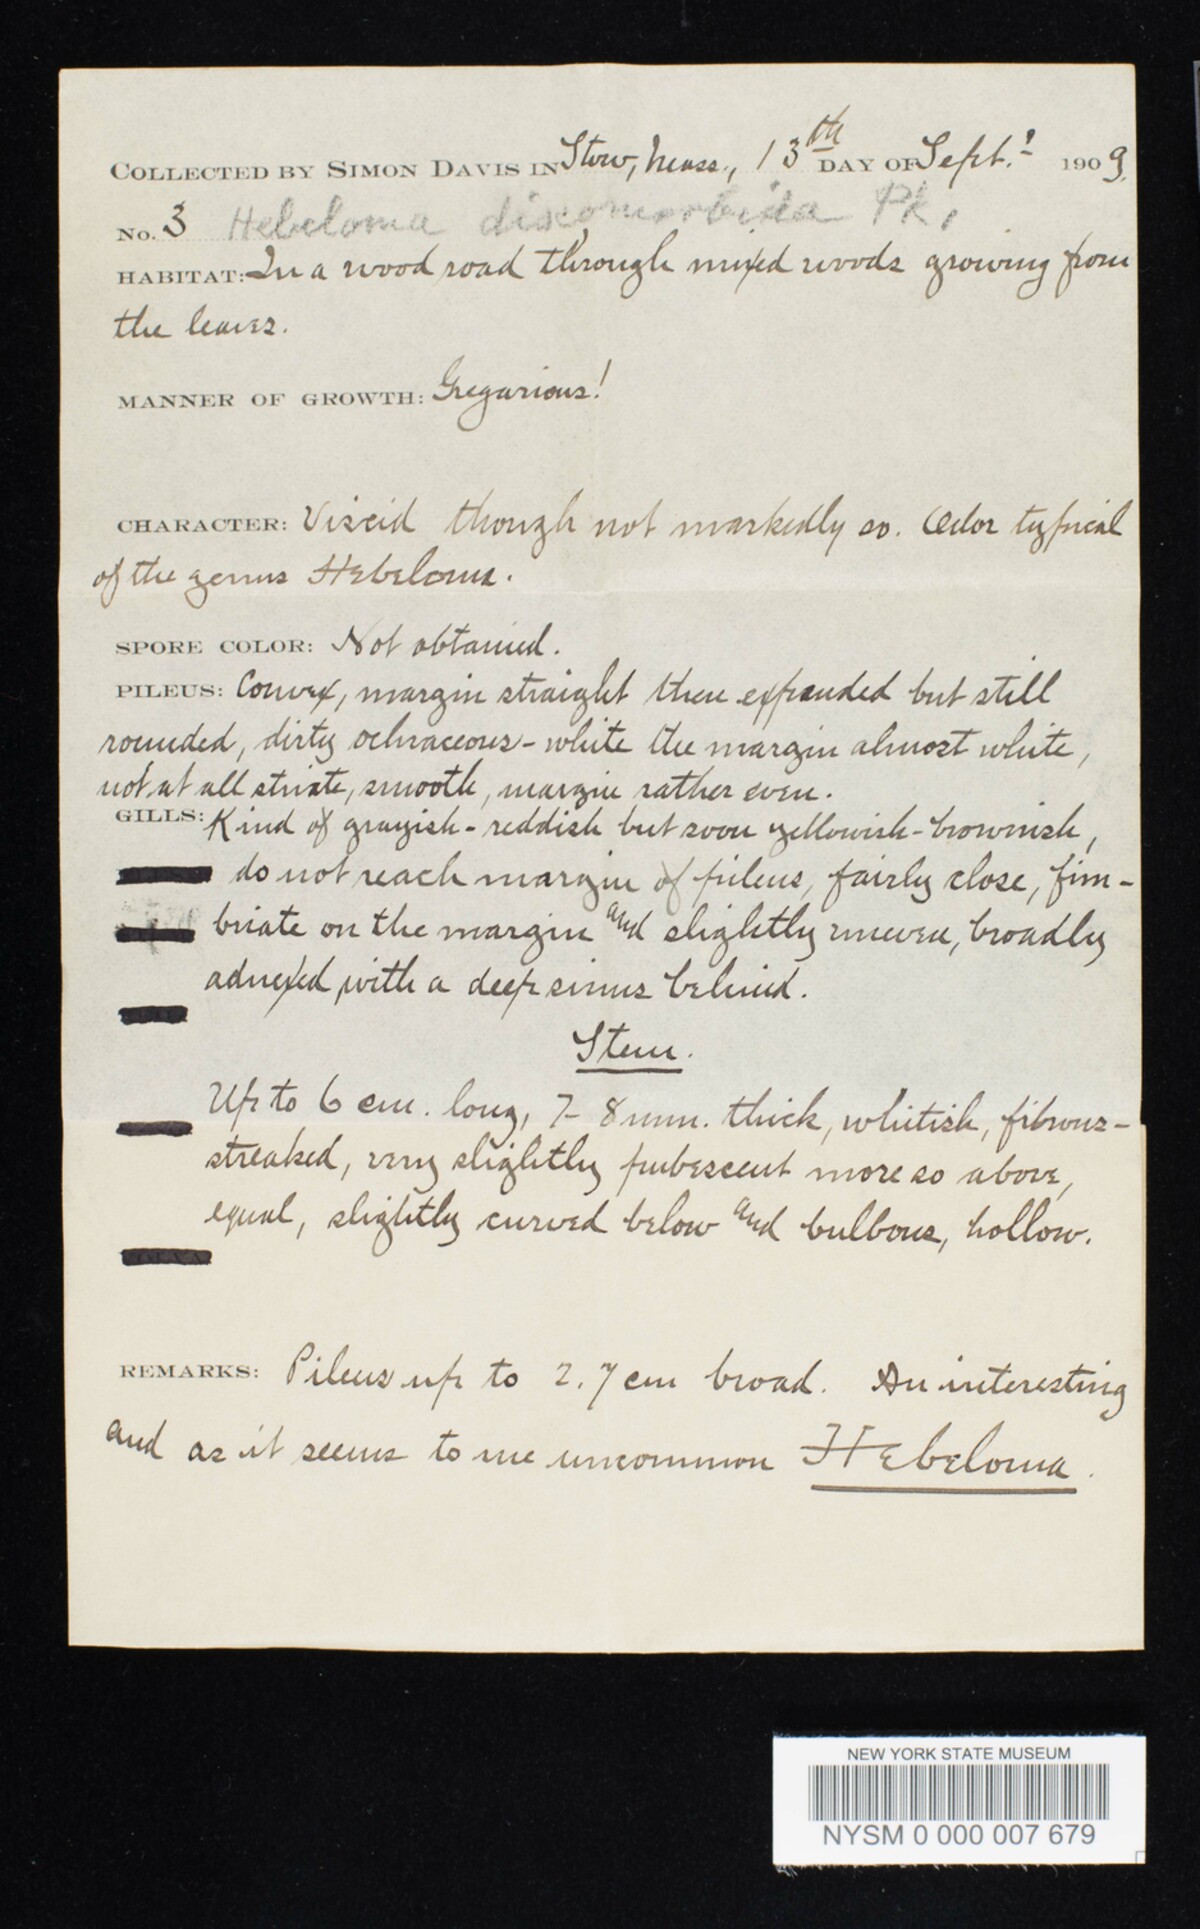 COLLECTED BY SIMON DAVIS IN Stow, Mass., 13th DAY OF Sept. 1909.
No. 3 Hebeloma discomorbida Pk.
HABITAT: In a wood road through mixed woods growing from
the leaves.
MANNER OF GROWTH: Gregarious!
CHARACTER: Viscid though not markedly so. Odor typical
of the genus Hebeloma.
SPORE COLOR: Not obtained.
PILEUS: Convex, margin straight then expanded but still
rounded, dirty ochraceous-white the margin almost white,
not at all striate, smooth, margin rather even.
GILLS: Kind of grayish-reddish but soon yellowish-brownish,
do not reach margin of pileus, fairly close, fim-
briate on the margin and slightly uneven, broadly
adnexed with a deep sinus behind.
Stem.
Up to 6 cm. long, 7-8 mm. thick, whitish, fibrous-
streaked, very slightly pubescent more so above,
equal, slightly curved below and bulbous, hollow.
REMARKS: Pileus up to 2.7 cm broad. An interesting
and as it seems to me uncommon Hebeloma.
NEW YORK STATE MUSEUM
NYSM 0 000 007 679